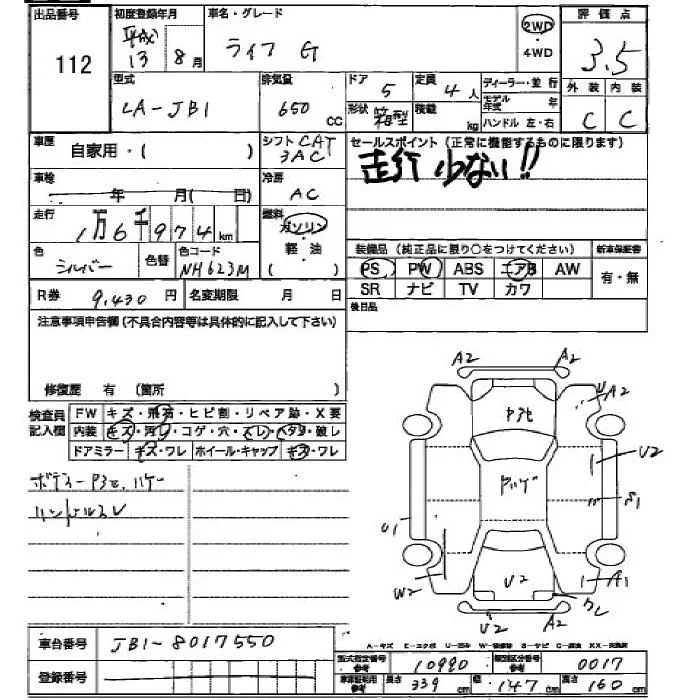 出品番号 112
初度登録年月 平成 13 8月
車名・グレード ライフ G
2WD ・4WD
評価点 3.5
型式 LA-JB1
排気量 650 cc
ドア 5
定員 4人
ディーラー・並行
形状 箱型
積載 kg
モデル年式 年
ハンドル 左・右
外装 C
内装 C
車歴 自家用・( )
シフト CAT 3AC
セールスポイント(正常に機能するものに限ります)
走行少ない!!
車検 年 月(日)
冷房 AC
走行 1万6千974km
燃料 ガソリン・軽油 ( )
色 シルバー
色替
色コード NH623M
装備品(純正品に限り○をつけてください)
新車保証書
PS PW ABS エアB AW
SR ナビ TV カワ
有・無
R券 9,430円
名変期限 月 日
後日品
注意事項申告欄(不具合内容等は具体的に記入して下さい)
修復歴 有 (箇所 )
検査員記入欄
FW キズ・飛石・ヒビ割・リペア跡・X要
内装 キズ・汚レ・コゲ・穴・スレ・ヘタリ・破レ
ドアミラー キズ・ワレ ホイール・キャップ キズ・ワレ
ボディーP3セ、ハゲ
ハンドルスレ
A2 A2
A2
P3セ
U2
Pハゲ
S1
U1
W2
U2
A1
U2 A2
車台番号 JB1-8017550
登録番号
A-キズ E-エクボ U-凹み
型式指定番号 参考 10990
類別区分番号 参考 0017
長さ 339 cm
幅 147 cm
高さ 160 cm